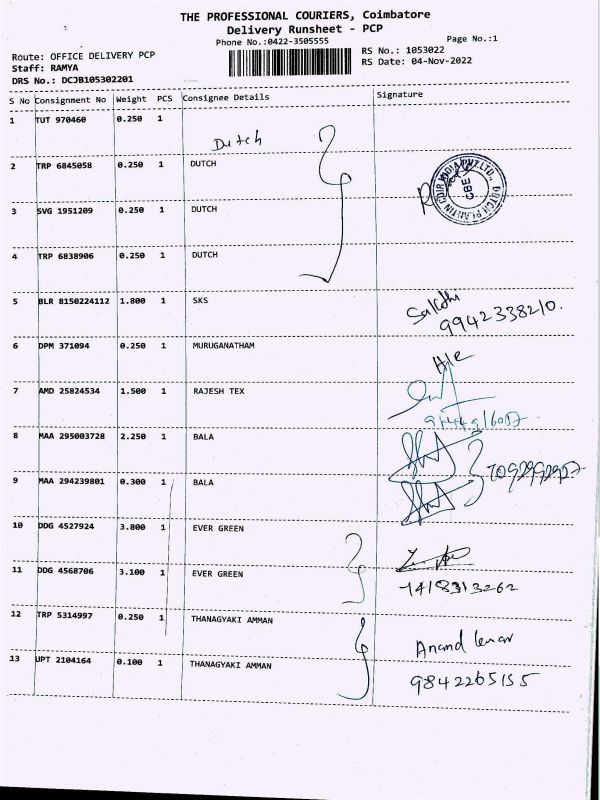 THE PROFESSIONAL COURIERS, Coimbatore
Delivery Runsheet - PCP
Phone No.:0422-3505555
Page No.:1
Route: OFFICE DELIVERY PCP
RS No.: 1053022
Staff: RAMYA
RS Date: 04-Nov-2022
DRS No.: DCJB105302201
S No Consignment No Weight PCS Consignee Details Signature
1 TUT 970460 0.250 1
Dutch
2 TRP 6845058 0.250 1 DUTCH
3 SVG 1951209 0.250 1 DUTCH
4 TRP 6838906 0.250 1 DUTCH
5 BLR 8150224112 1.800 1 SKS
Sakthi
9942338210.
6 DPM 371094 0.250 1 MURUGANATHAM
7 AMD 25824534 1.500 1 RAJESH TEX
8 MAA 295003728 2.250 1 BALA
9 MAA 294239801 0.300 1 BALA
10 DDG 4527924 3.800 1 EVER GREEN
11 DDG 4568706 3.100 1 EVER GREEN
7418313262
12 TRP 5314997 0.250 1 THANAGYAKI AMMAN
Anand
13 UPT 2104164 0.100 1 THANAGYAKI AMMAN
9842265155